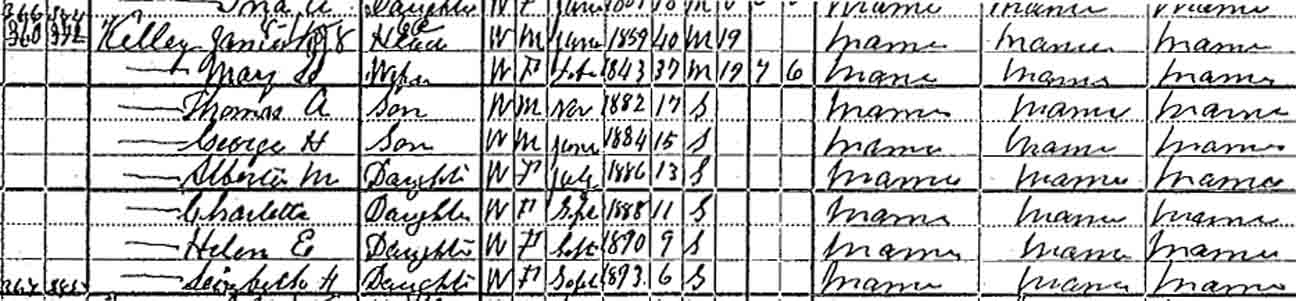 Daughter W F
Kelley Head W M June 1859 40 M 19 Maine Maine Maine
Mary Wife W F 1843 37 M 19 7 6 Maine Maine Maine
Thomas A Son W M Nov 1882 17 S Maine Maine Maine
George H Son W M June 1884 15 S Maine Maine Maine
Alberta M Daughter W F July 1886 13 S Maine Maine Maine
Charlotte Daughter W F Sept 1888 11 S Maine Maine Maine
Helen E Daughter W F Sept 1890 9 S Maine Maine Maine
H Daughter W F Sept 1893 6 S Maine Maine Maine